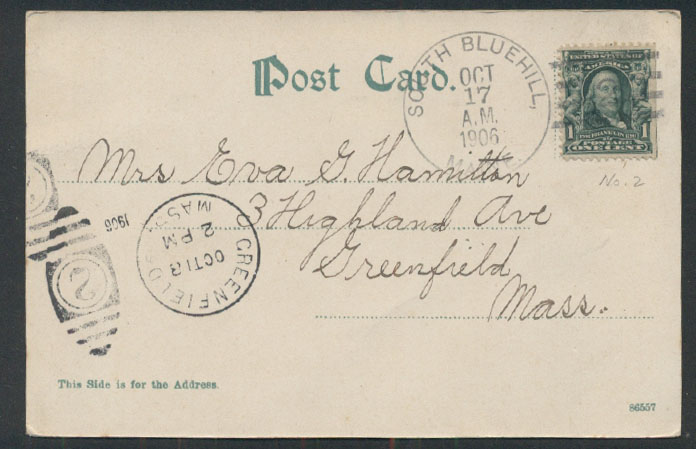 Post Card.
SOUTH BLUEHILL,
OCT
17
A.M.
1906
UNITED STATES OF
AMERICA
1 1
POSTAGE
ONE CENT
No. 2
Mrs Eva G. Hamilton
3 Highland Ave
Greenfield
Mass.
GREENFIELD
MASS.
OCT 18
2 PM
1906
2
This Side is for the Address.
86557